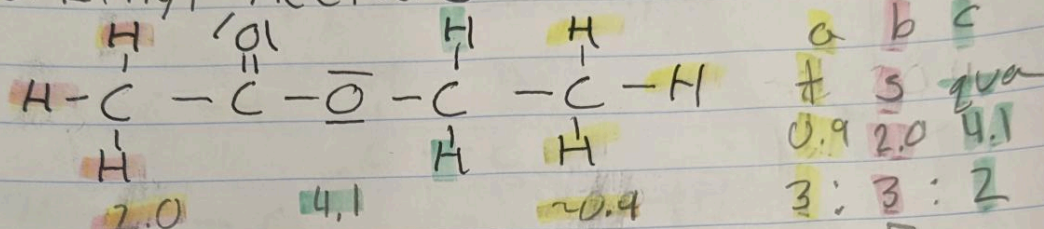 H 101 H H a b c
|| 
H - C - C - O - C - C - H t s qua
H H H 0.9 2.0 4.1
2.0 4.1 ~0.9 3 : 3 : 2